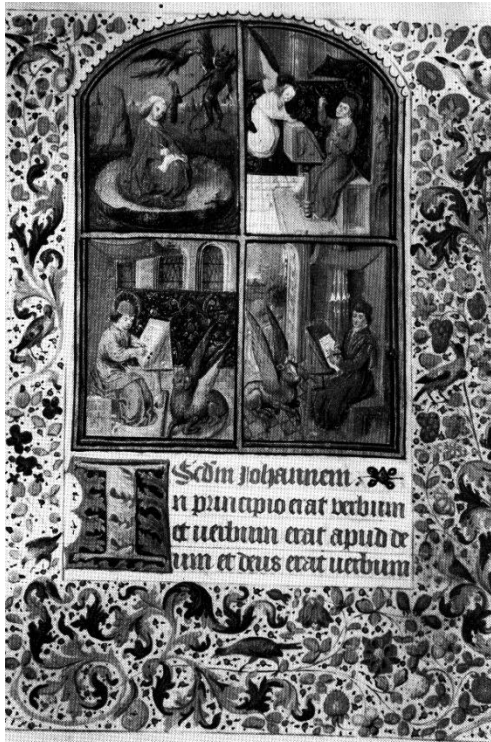 Scdm Johannem
In principio erat verbum
et uerbum erat apud de
um et deus erat uerbum